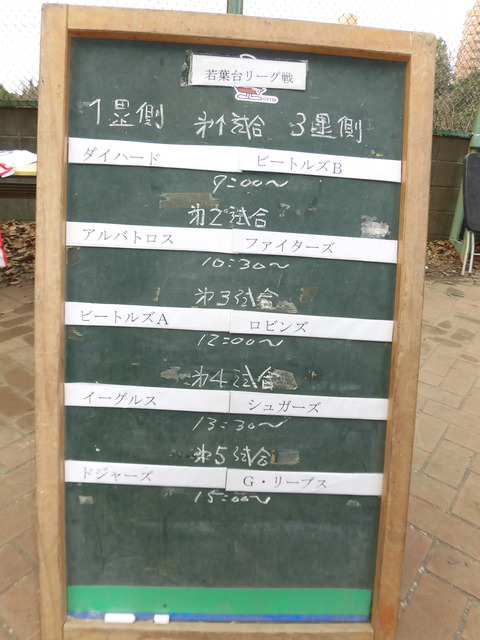 若葉台リーグ戦
1塁側 第1試合 3塁側
ダイハード ビートルズB
9:00〜
第2試合
アルバトロス ファイターズ
10:30〜
第3試合
ビートルズA ロビンズ
12:00〜
第4試合
イーグルス シュガーズ
13:30〜
第5試合
ドジャーズ G・リーブス
15:00〜